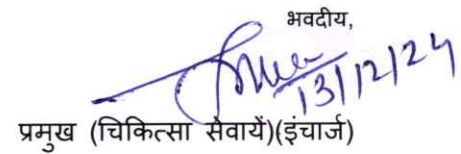 भवदीय,
13/12/24
प्रमुख (चिकित्सा सेवायें)(इंचार्ज)